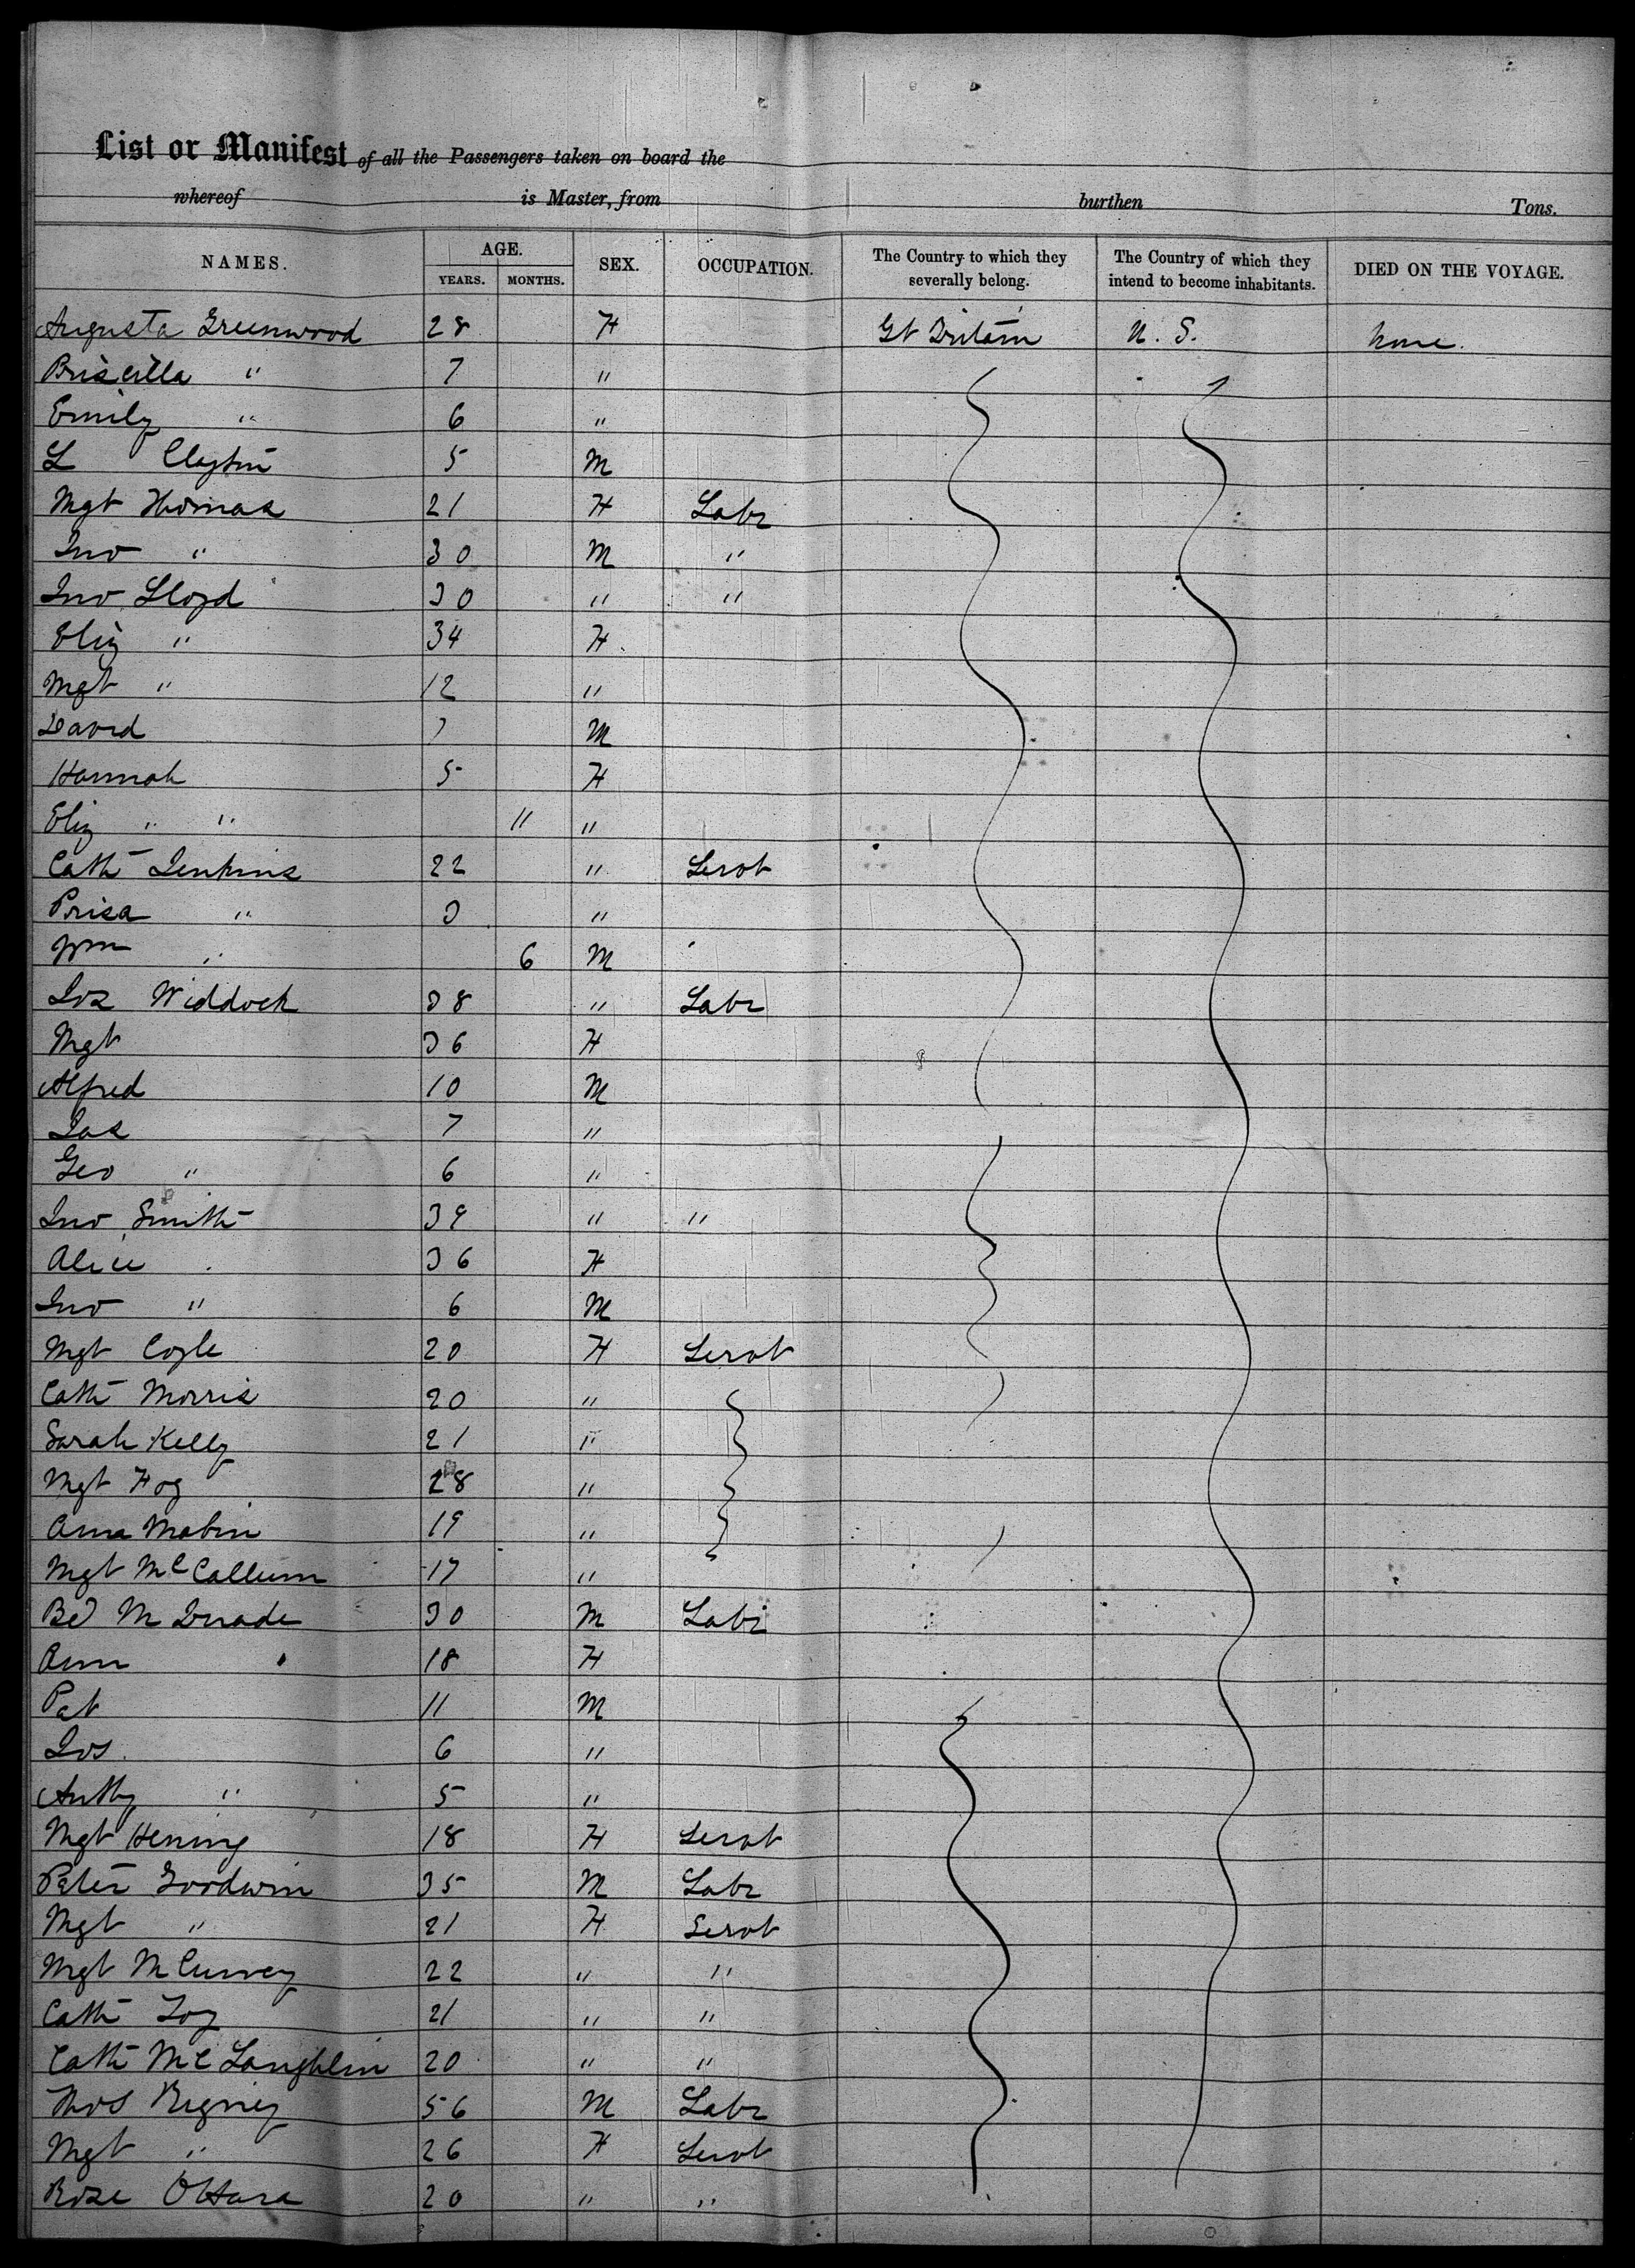 List or Manifest of all the Passengers taken on board the
whereof is Master, from burthen Tons.
NAMES. AGE. YEARS. MONTHS. SEX. OCCUPATION. The Country to which they severally belong. The Country of which they intend to become inhabitants. DIED ON THE VOYAGE.
Augusta Greenwood 28 F Gt Britain U. S. None.
Priscilla " 7 "
Emily " 6 "
L Clayton 5 M
Mgt Thomas 21 F Labr
Jno " 30 M "
Jno Lloyd 30 " "
Eliz " 34 F
Mgt " 12 "
David 7 M
Hannah 5 F
Eliz " " 11 "
Cath Jenkins 22 " Servt
Prisa " 3 "
Wm " 6 M
Jos Widdock 38 " Labr
Mgt 36 F
Alfred 10 M
Jas 7 "
Geo " 6 "
Jno Smith 39 " "
Alice 36 F
Jno " 6 M
Mgt Coyle 20 F Servt
Cath Morris 20 "
Sarah Kelly 21 "
Mgt Foy 28 "
Anna Mabin 19 "
Mgt McCallum 17 "
Bd M Quade 30 M Labr
Ann 18 F
Pat 11 M
Jos 6 "
Anthy " 5 "
Mgt Hening 18 F Servt
Peter Goodwin 35 M Labr
Mgt " 21 F Servt
Mgt McCurvey 22 " "
Cath Foy 21 " "
Cath McLaughlin 20 " "
Thos Regney 56 M Labr
Mgt " 26 F Servt
Rose OHara 20 " "